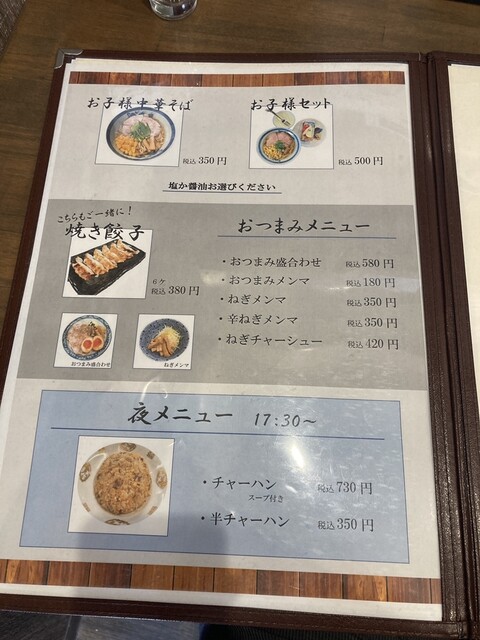 お子様中華そば
税込 350円
お子様セット
税込 500円
塩か醤油お選びください
こちらもご一緒に!
焼き餃子
6ケ
税込 380円
おつまみ盛合わせ
ねぎメンマ
おつまみメニュー
・おつまみ盛合わせ 税込 580円
・おつまみメンマ 税込 180円
・ねぎメンマ 税込 350円
・辛ねぎメンマ 税込 350円
・ねぎチャーシュー 税込 420円
夜メニュー 17:30～
・チャーハン 税込 730円
スープ付き
・半チャーハン 税込 350円